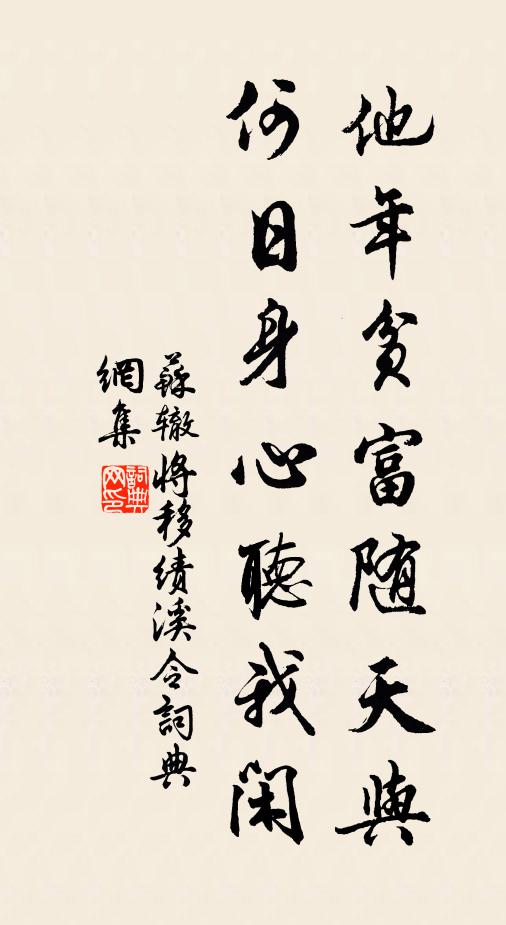 他年贫富随天與
何日身心聽我閑
蘇辙将移績溪令詞典
網集
詞典网印